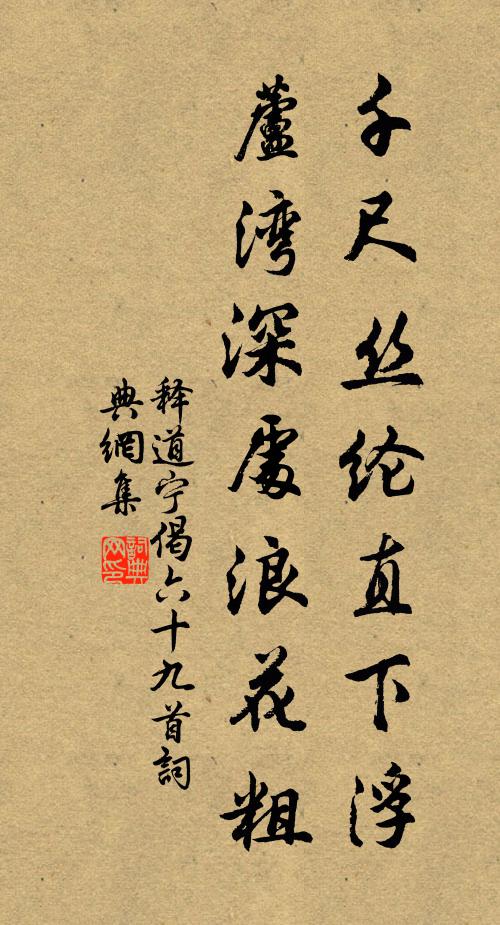 千尺丝纶直下浮
蘆湾深處浪花粗
释道宁偈六十九首詞
典網集
詞典
网印